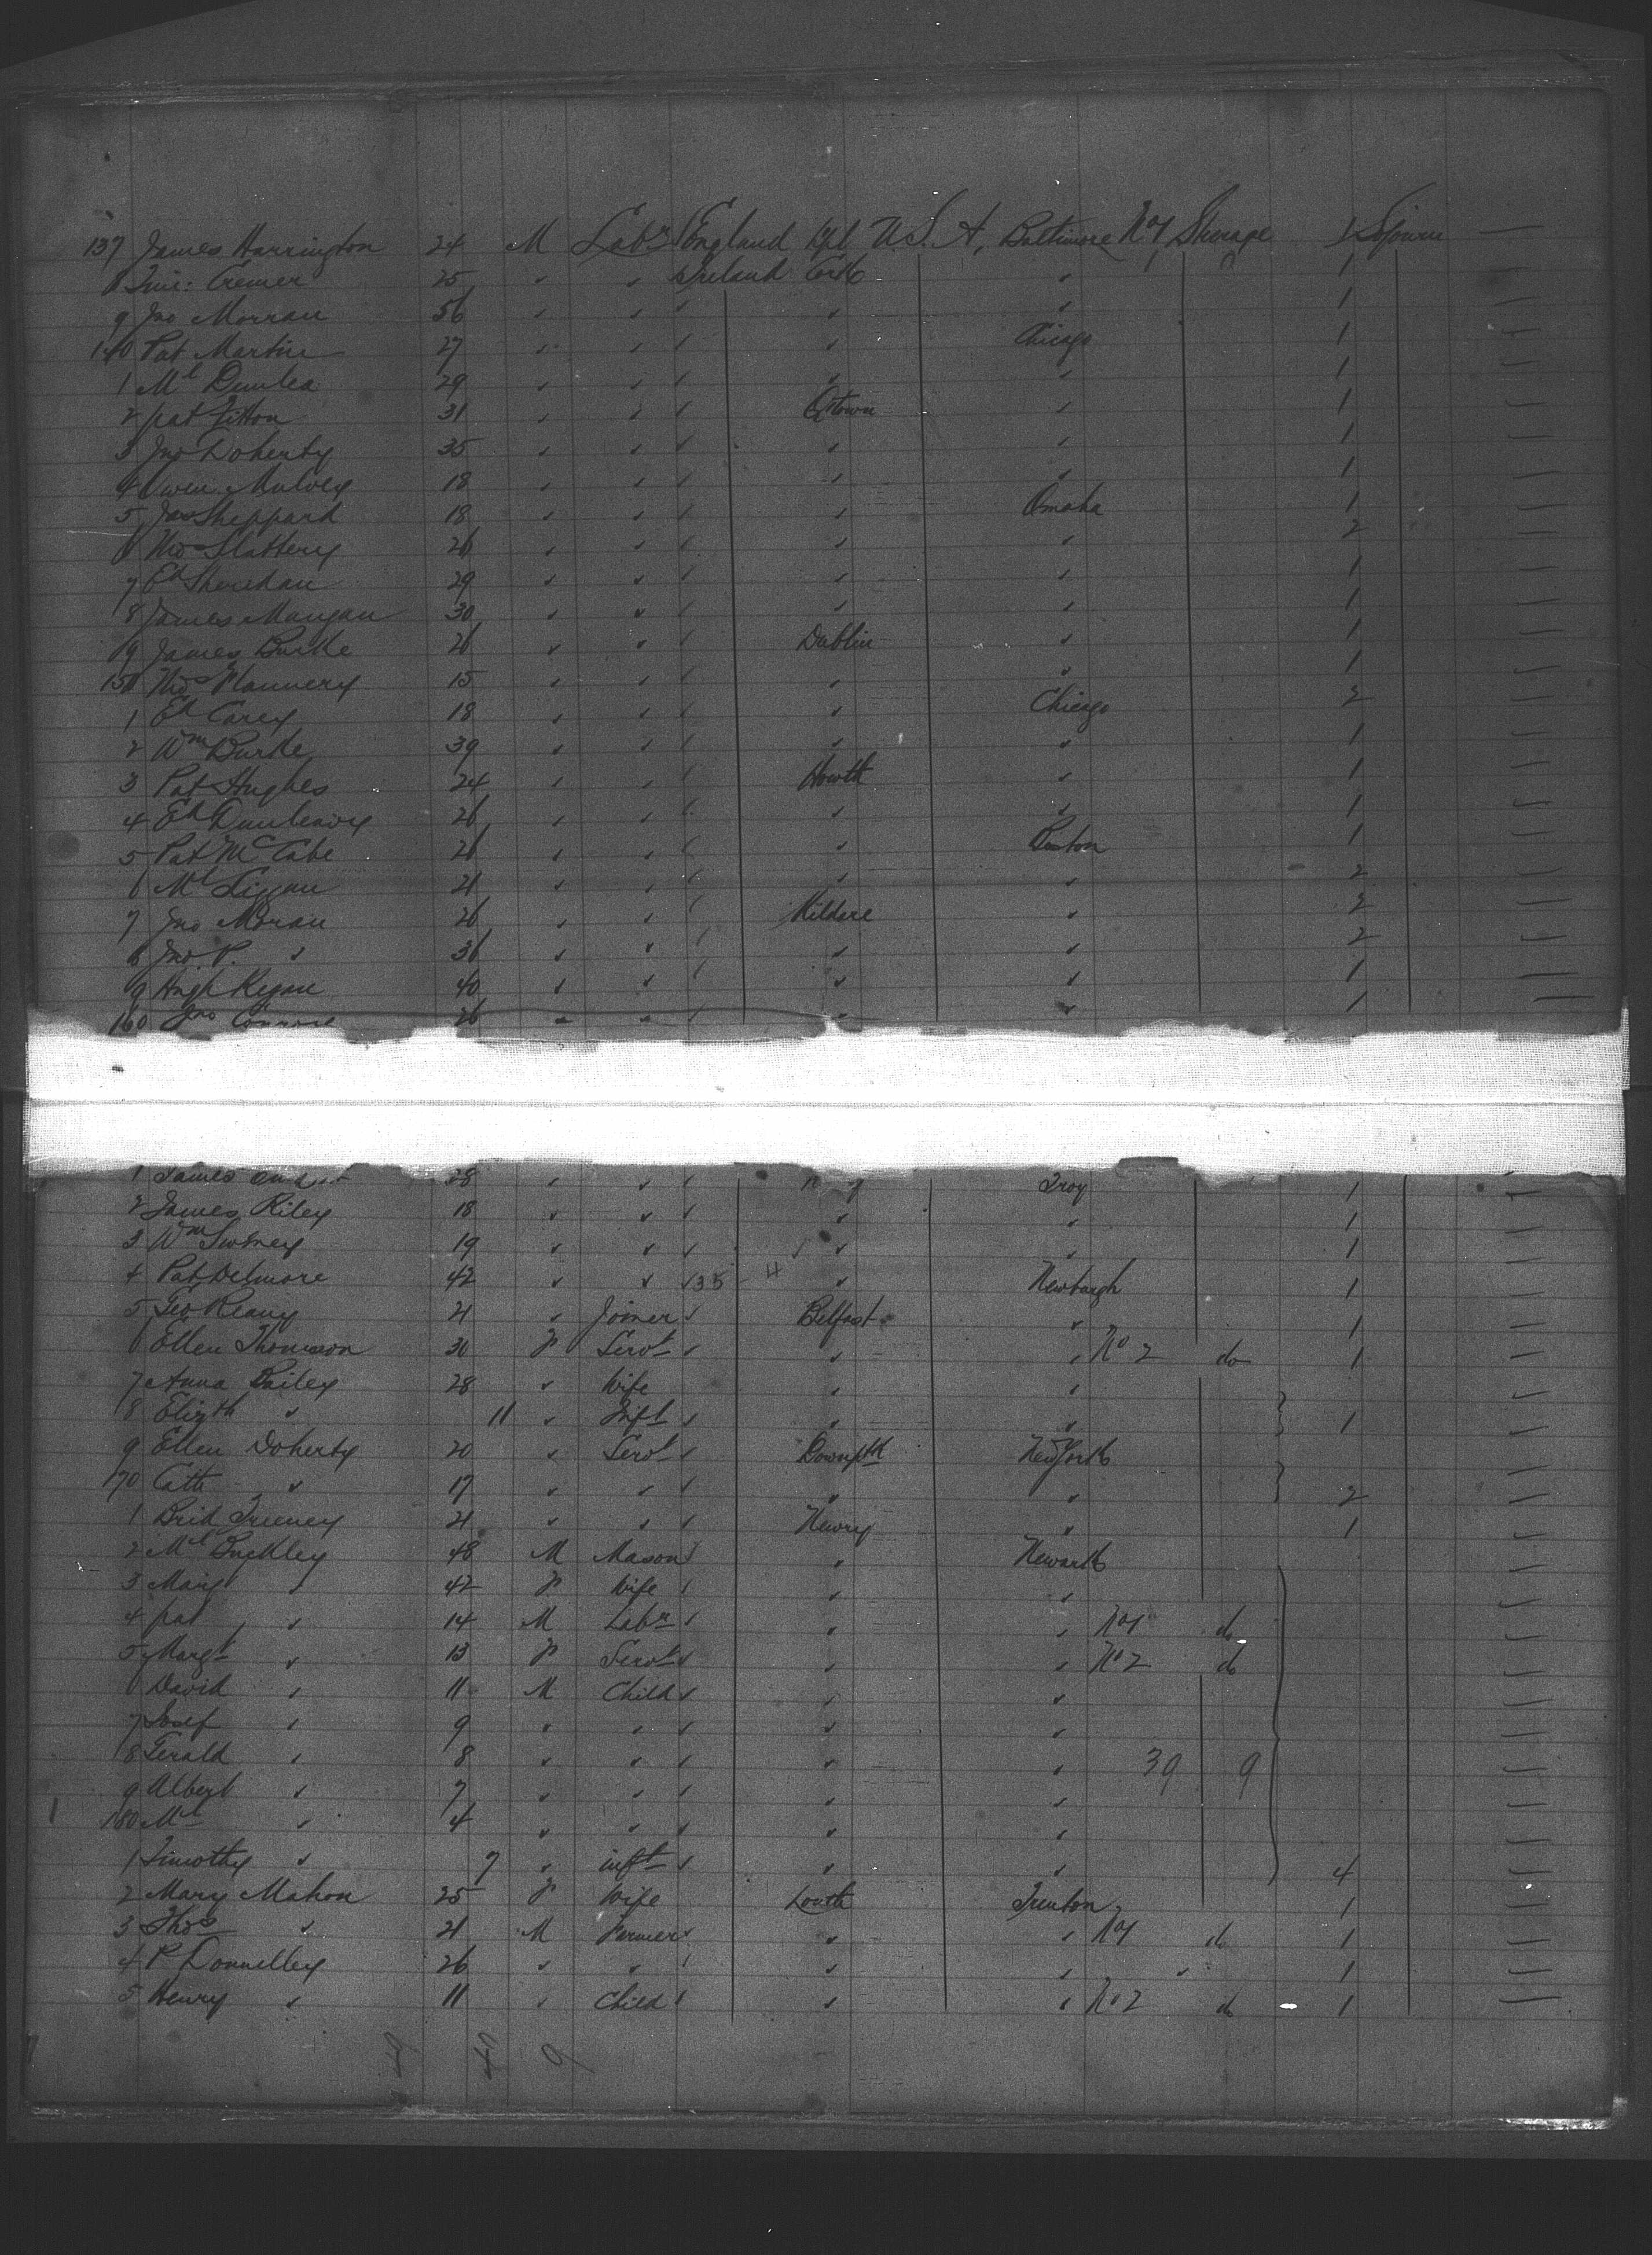 137 James Harrington 24 M Labr England Lpl U.S.A. Baltimore No 1 Steerage 1 Sojourn —
8 Cremer 25 " " Ireland Cork " 1 —
9 Jno Morran 56 " " " " " 1 —
140 Pat Martin 27 " " " " Chicago 1 —
1 Ml Dunlea 29 " " " " " 1 —
2 pat Fitton 31 " " " Qtown " 1 —
3 Jno Doherty 35 " " " " " 1 —
4 Owen Mulvey 18 " " " " " 1 —
5 Jas Sheppard 18 " " " " Omaha 1 —
6 Thos Slattery 26 " " " " " 2 —
7 Ed Sheehan 29 " " " " " 1 —
8 James Mangan 30 " " " " " 1 —
9 James Burke 26 " " " Dublin " 1 —
150 Thos Flannery 15 " " " " " 1 —
1 Ed Carey 18 " " " " Chicago 2 —
2 Wm Burke 39 " " " " " 1 —
3 Pat Hughes 24 " " " Howth " 1 —
4 Ed Dunleavy 26 " " " " " 1 —
5 Pat McCabe 26 " " " " Boston 1 —
6 Ml 21 " " " " " 2 —
7 Jno Moran 26 " " " Kildare " 2 —
8 Jno. P. " 36 " " " " " 2 —
9 Hugh Regan 40 " " " " " 1 —
160 Jno 26 " " " " " 1 —
1 James 28 " " " Troy 1 —
2 James Riley 18 " " " " " 1 —
3 Wm Swiney 19 " " " " " 1 —
4 Pat Delmore 42 " " " 35 - 4 " Newburgh 1 —
5 Geo Reany 21 " Joiner " Belfast " 1 —
6 Ellen Thomson 30 F Servt " " " No 2 do 1 —
7 Anna Bailey 28 " Wife " " —
8 Elizth " 11 " Inft " " " 1 —
9 Ellen Doherty 20 " Servt " Downpth New York —
170 Cath " 17 " " " " " 2 —
1 Brid Treeney 21 " " " Newry " 1 —
2 Ml Buckley 48 M Mason " " Newark —
3 Mary " 42 F Wife " " " —
4 pat " 14 M Labr " " " No 1 do —
5 Margt " 13 F Servt " " " No 2 do —
6 David " 11 M Child " " " —
7 Josef " 9 " " " " " —
8 Gerald " 8 " " " " " 39 9 —
9 Albert " 7 " " " " " —
1 180 Ml " 4 " " " " " —
1 Timothy " 7 " inft " " " 4 —
2 Mary Mahon 25 F Wife Louth Trenton 1 —
3 Thos " 21 M Farmer " " " No 1 do 1 —
4 P Donnelley 26 " " " " " " 1 —
5 Henry " 11 " Child " " " No 2 do 1 —